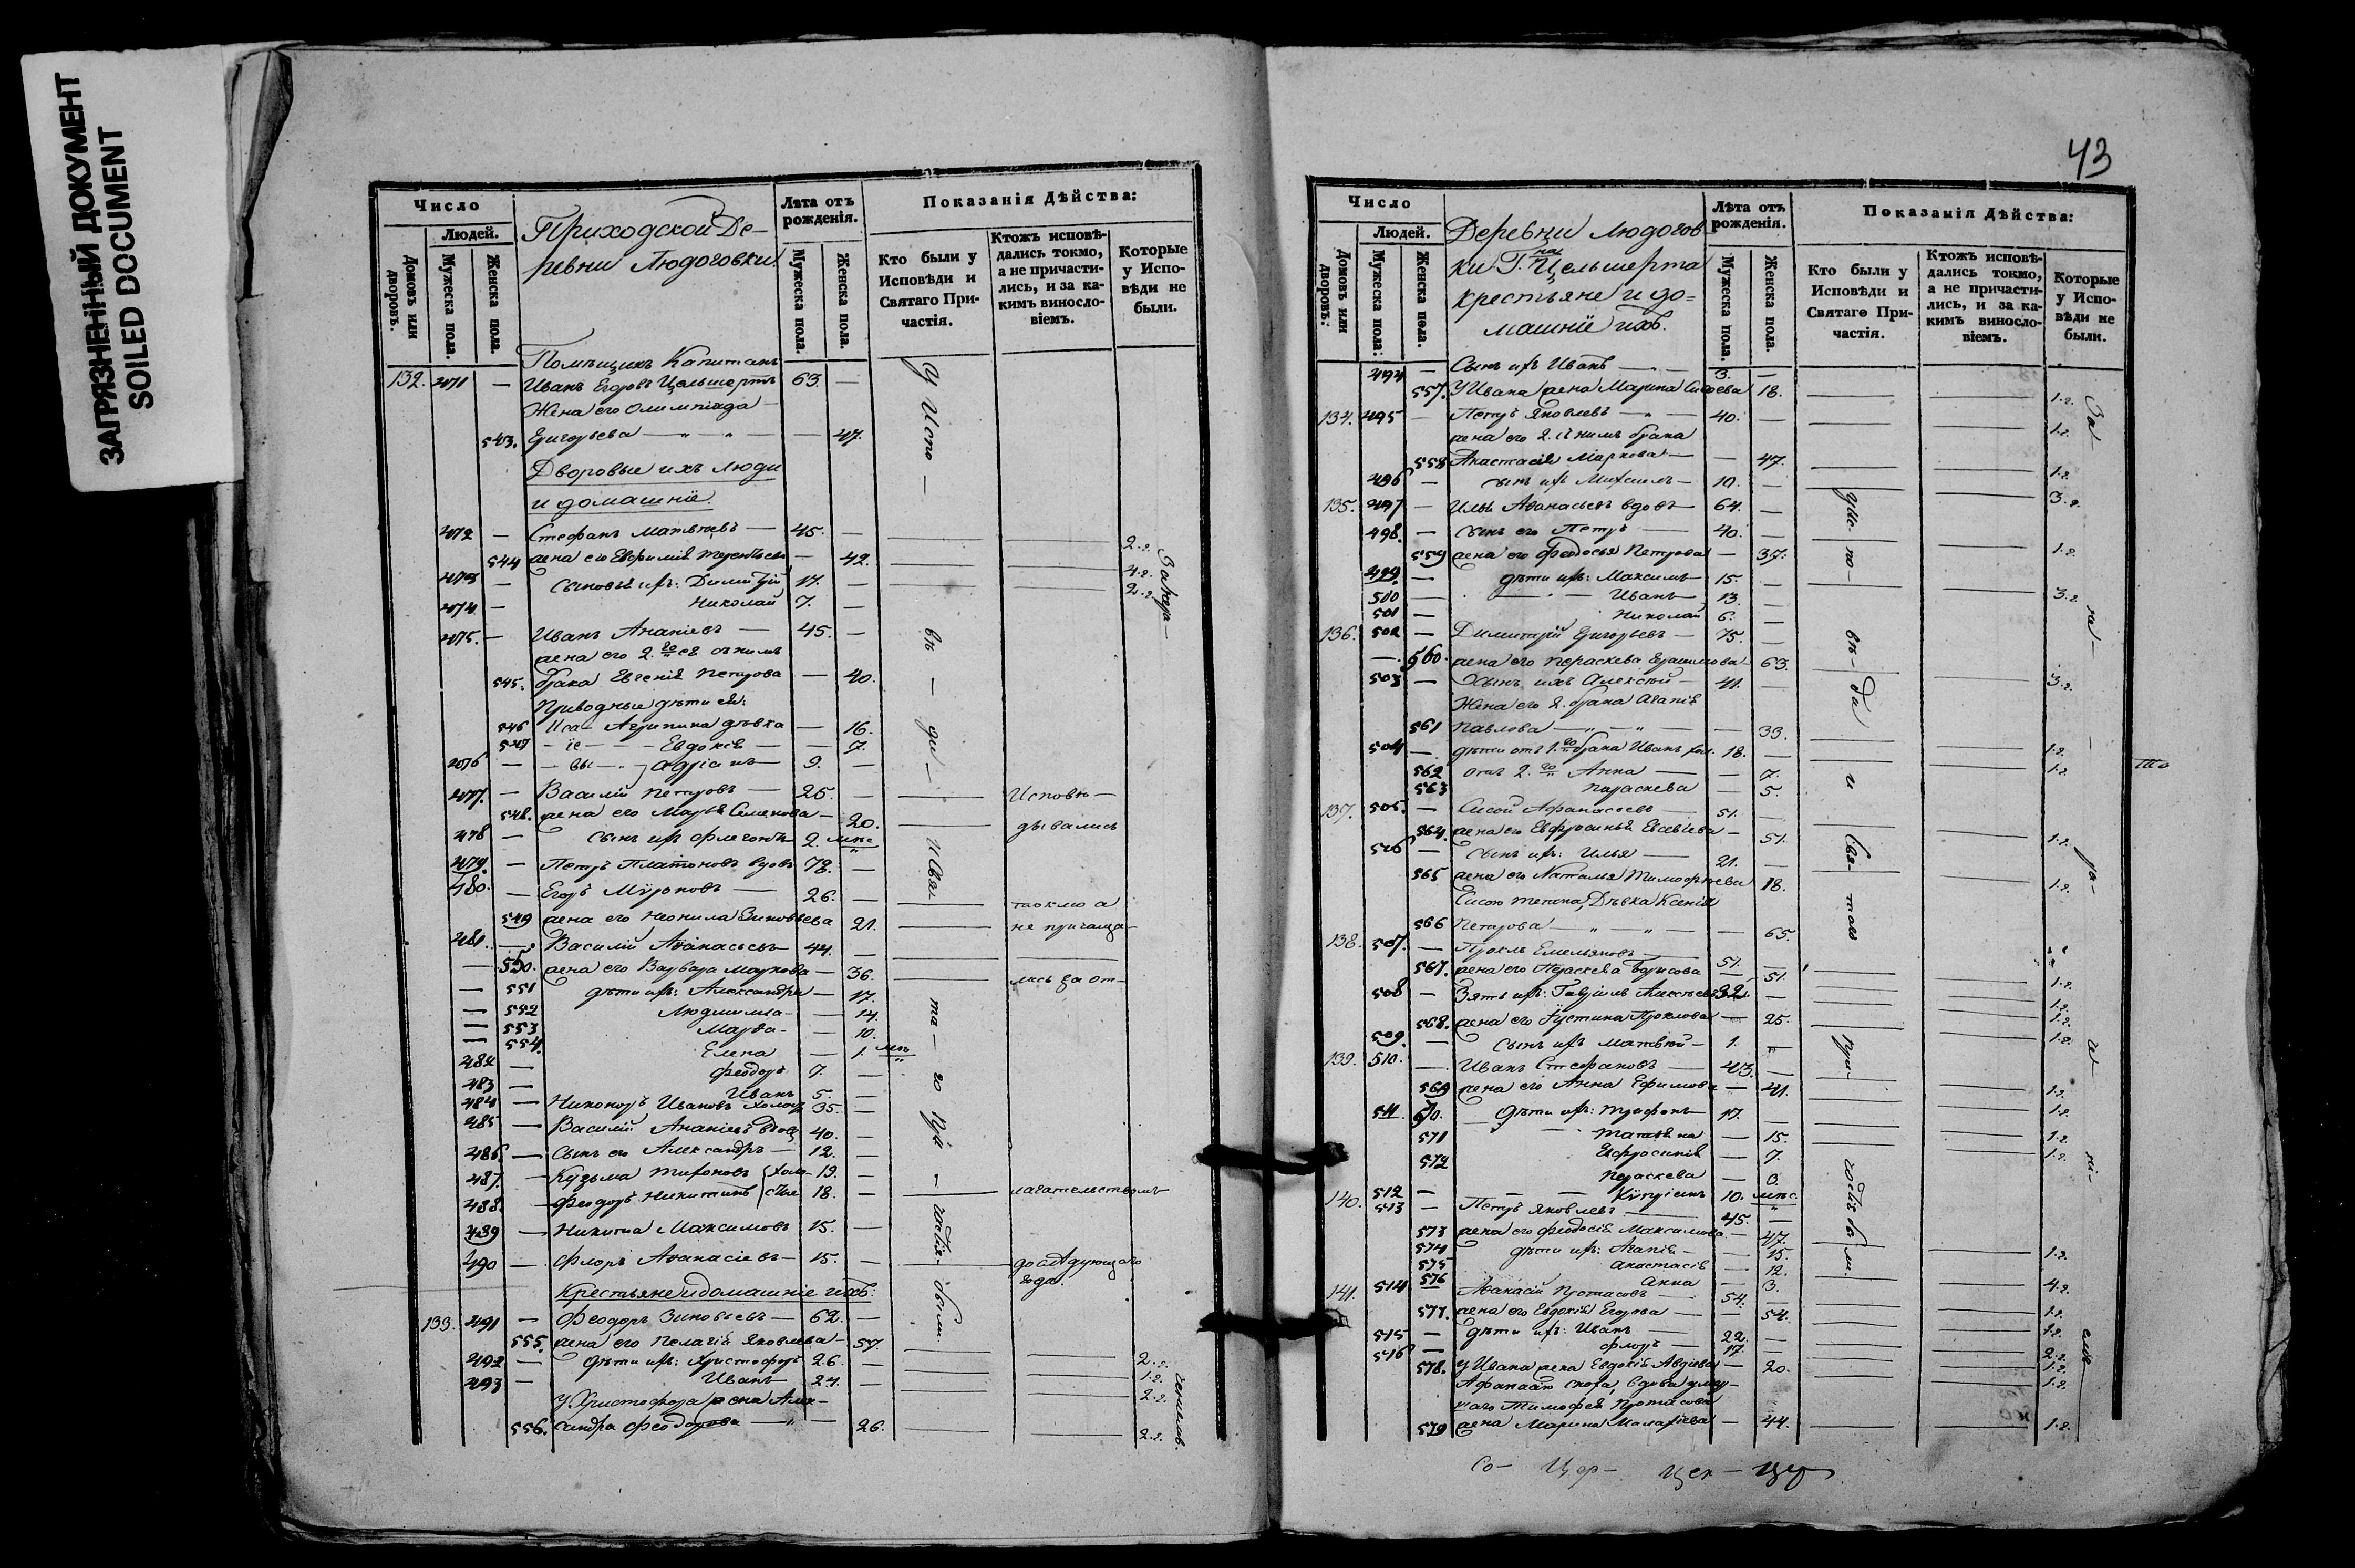 ЗАГРЯЗНЕННЫЙ ДОКУМЕНТ
SOILED DOCUMENT
Число
Людей.
Домовъ или дворовъ.
Мужеска пола.
Женска пола.
Приходской Де-
ревни Людоговки
Лѣта отъ рожденія.
Мужеска пола.
Женска пола.
Показанія Дѣйства:
Кто были у Исповѣди и Святаго Причастія.
Ктожъ исповѣ-дались токмо, а не причасти-лись, и за ка-кимъ винословіемъ.
Которые у Испо-вѣди не были.
Помѣщикъ Капитанъ
132. 471 — Иванъ Егоровъ Цельшертъ 63. —
Жена его Олимпіада
543. Григорьева — 47.
Дворовые ихъ люди
и домашніе.
472 — Стефанъ Матвѣевъ — 45. —
544 жена его Евфимія Терентьева — 42. 2.г.
473 — Сыновья ихъ: Димитрій 17. — 4.г.
474 — Николай 7. — 2.г.
475. — Иванъ Ананіевъ — 45. —
жена его 2.го съ нимъ
545. брака Евгенія Петрова — 40.
Приводные дѣти ея:
546 Агрипина дѣвка — 16.
547 Евдокія — 7.
476 — Адріанъ 9. —
477. — Василій Петровъ — 25. — Исповѣ-
548. жена его Марья Семенова — 20. дывались
478 — Сынъ ихъ Флегонтъ 2. млс
479. — Петръ Платоновъ вдовъ 78. —
480. — Егоръ Мироновъ — 26. — токмо а
549 жена его Неонила Зиновьева 21. не прича-
481. — Василій Аѳанасьевъ 44. —
550. жена его Варвара Маркова — 36. лись за от-
551 дѣти ихъ: Александра — 17.
552 Людмила — 14.
553 Марѳа — 10.
554. Елена — 1. млс
482 — Феодоръ 7. —
483 — Иванъ 5. —
484 — Никоноръ Ивановъ холос 35. —
485 — Василій Ананіевъ вдов 40. —
486 — Сынъ его Александръ — 12. —
487. — Кузьма Тихоновъ холо- 19. —
488. — Феодоръ Никитинъ стые 18. — лагательствомъ
489 — Никита Максимовъ 15. —
490 — Флоръ Аѳанасіевъ — 15. — до слѣдующаго
года.
Крестьяне и домашніе ихъ:
133. 491 — Феодоръ Зиновьевъ — 62. —
555. жена его Пелагія Яковлева — 57.
492 — дѣти ихъ: Христофоръ 26. — 2.г.
493 — Иванъ — 24. — 1.г.
У Христофора жена Алек- 2.г.
556. сандра Феодорова — 26. 2.г.
У Испо — вѣ — ди — и Свя — та — го При — частія были.
43
Число
Людей.
Домовъ или дворовъ:
Мужеска пола:
Женска пола.
Деревни Людогов
ки Г.на Цельшерта
крестьяне и до=
машніе ихъ.
Лѣта отъ рожденія.
Мужеска пола.
Женска пола.
Показанія Дѣйства:
Кто были у Исповѣди и Святаго Причастія.
Ктожъ исповѣ-дались токмо, а не причасти-лись, и за ка-кимъ винословіемъ.
Которые у Испо-вѣди не были.
494 — Сынъ ихъ Иванъ — 3. —
557. У Ивана жена Марина Сысоева 18. 1.г.
134. 495 — Петръ Яковлевъ — 40. — 1.г.
жена его 2. съ нимъ брака
558 Анастасія Маркова — 47. 1.г.
496 — сынъ ихъ Михаилъ — 10. — 3.г.
135. 497 — Илья Аѳанасьевъ вдовъ 64. —
498. — сынъ его Петръ — 40. — 1.г.
559 жена его Феодосья Петрова — 37.
499. — дѣти ихъ: Максимъ 15. — 3.г.
500 — Иванъ 13. —
501 — Николай 6. —
136. 502 — Димитрій Григорьевъ — 75. —
560. жена его Параскева Герасимова 63.
503 — Сынъ ихъ Алексѣй — 41. — 3.г.
Жена его 2. брака Агапія
561 Павлова — 33.
504 — дѣти отъ 1.го брака Иванъ хол. 18. — 1.г.
562 отъ 2.го Анна — 7. 1.г.
563 Параскева — 5.
137. 505. — Сисой Афанасьевъ — 51. —
564. жена его Евфросинья Евсевіева — 51. 1.г.
506 — Сынъ ихъ: Илья — 21. —
565 жена его Наталья Тимофѣева 18. 1.г.
Сисою тетка, Дѣвка Ксенія
566 Петрова — 65.
138. 507. — Проклъ Емельяновъ — 51. —
567. жена его Параскева Борисова — 51. 1.г.
508 — Зять ихъ: Гавріилъ Алексѣевъ 32 — 1.г.
568. жена его Іустина Проклова — 25. 1.г.
509. — Сынъ ихъ Матвѣй — 1. 1.г.
139. 510. — Иванъ Стефановъ — 43. —
569 жена его Анна Ефимова — 41. 1.г.
511 570. дѣти ихъ: Трифонъ 17. — 1.г.
571 Татьяна — 15. 1.г.
572 Евфросинія — 7. 1.г.
Параскева — 3.
512 — Кипріанъ 10. млс.
140. 513 — Петръ Яковлевъ — 45. —
573 жена его Феодосія Максимова — 47.
574 дѣти ихъ: Агапія — 15. 1.г.
575 Анастасія 12.
576 Анна — 3. 4.г.
141. 514 Аѳанасій Протасовъ 54. —
577. жена его Евдокія Егорова — 54. 1.г.
515 — дѣти ихъ: Иванъ 22. — 1.г.
516 — Флоръ — 17. — 2.г.
578. У Ивана жена Евдокія Авдіева — 20. 1.г.
Афанасію сноха, вдова умер- 1.г.
шаго Тимофея Протасова
579 жена Марина Малахіева — 44. 1.г.